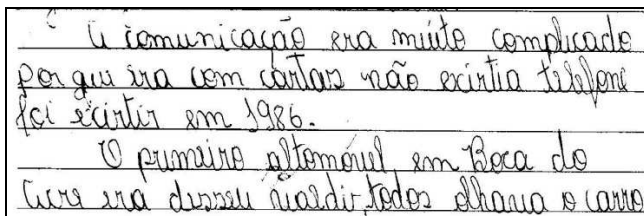 A comunicação era muito complicado
por que era com cartas não exirtia telefone
foi exirtir em 1986.
O primeiro altomóvel em Boca do
Acre era desseu Valdir, todos olhava o carro